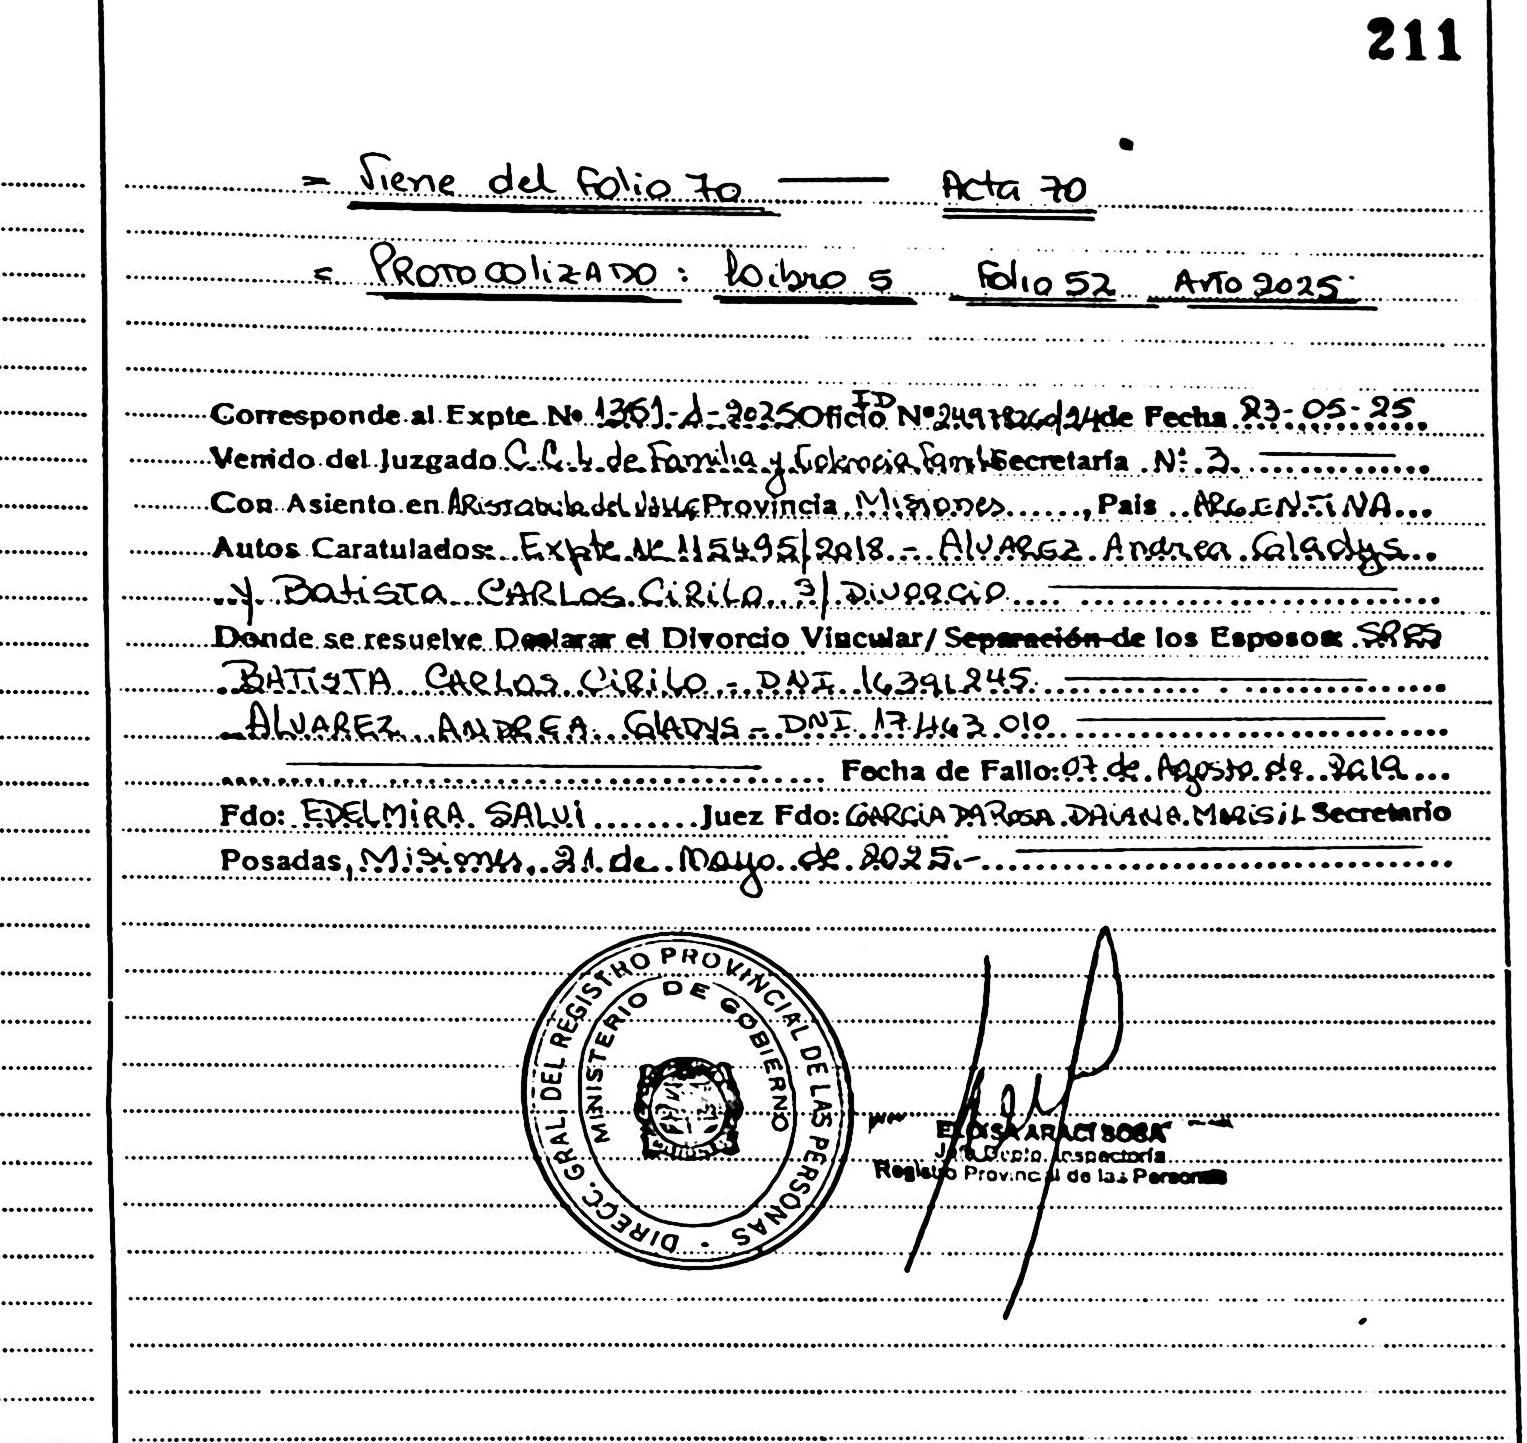 211
= Viene del Folio 70 — Acta 70
< PROTOCOLIZADO: Libro 5 Folio 52 Año 2025.
Corresponde al Expte Nº 1351-d-2025 Oficio ID Nº de Fecha 23-05-25
Venido del Juzgado C.C.L. de Familia y Violencia Famil Secretaría Nº 3.
Con Asiento en Aristobulo del Valle Provincia Misiones, Pais ARGENTINA
Autos Caratulados: Expte Nº 115495/2018 - ALVAREZ Andrea Gladys
y Batista CARLOS CIRILO S/ DIVORCIO
Donde se resuelve Declarar el Divorcio Vincular/ Separación de los Esposos: SRES
BATISTA CARLOS CIRILO - DNI 16391245
ALVAREZ ANDREA GLADYS - DNI 17.463.010
Fecha de Fallo: 07 de Agosto de 2019
Fdo: EDELMIRA SALVI Juez Fdo: GARCIA DA ROSA DAIANA MARISIL Secretario
Posadas, Misiones, 21 de Mayo de 2025.-
DIRECC. GRAL. DEL REGISTRO PROVINCIAL DE LAS PERSONAS
MINISTERIO DE GOBIERNO
ELOISA ARACI SOSA
Jefa Depto. Inspectoría
Registro Provincial de las Personas